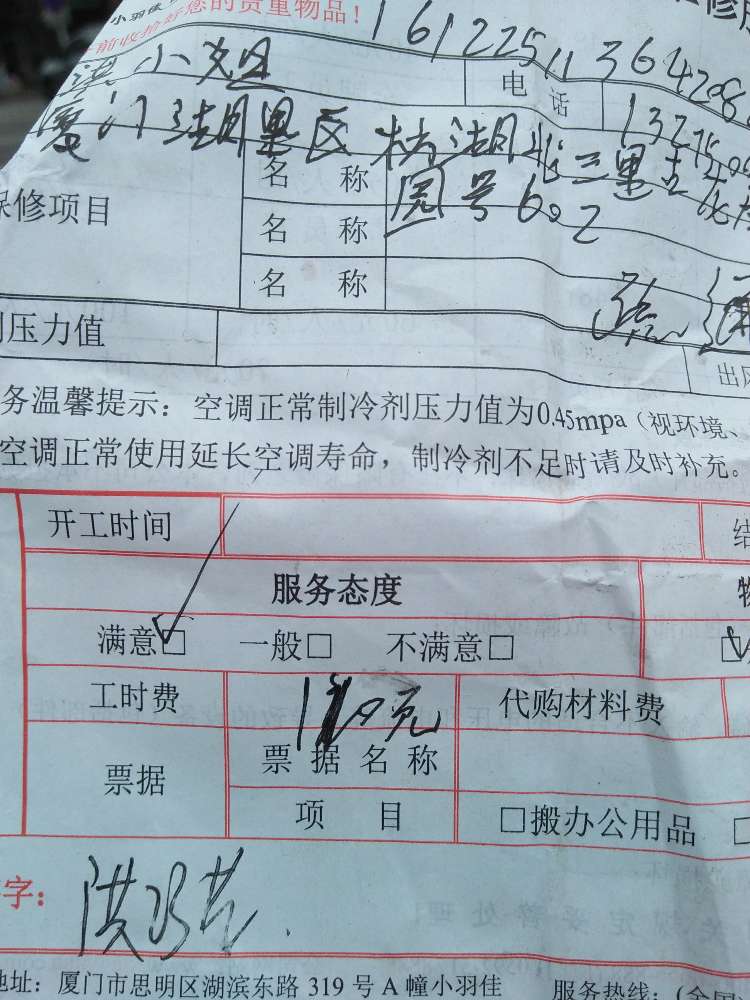 小羽佳
前收拾好您的贵重物品！
修服
16122511364208
洪小姐
电 话
厦门湖里区
名 称
保修项目
园号602
名 称
名 称
压力值
出风
务温馨提示：空调正常制冷剂压力值为0.45mpa（视环境、
空调正常使用延长空调寿命，制冷剂不足时请及时补充。
开工时间
结
服务态度
物
满意□ 一般□ 不满意□
工时费
元
代购材料费
票据
票据名称
项 目
□搬办公用品
字：
地址：厦门市思明区湖滨东路 319 号 A 幢小羽佳
服务热线：（全国